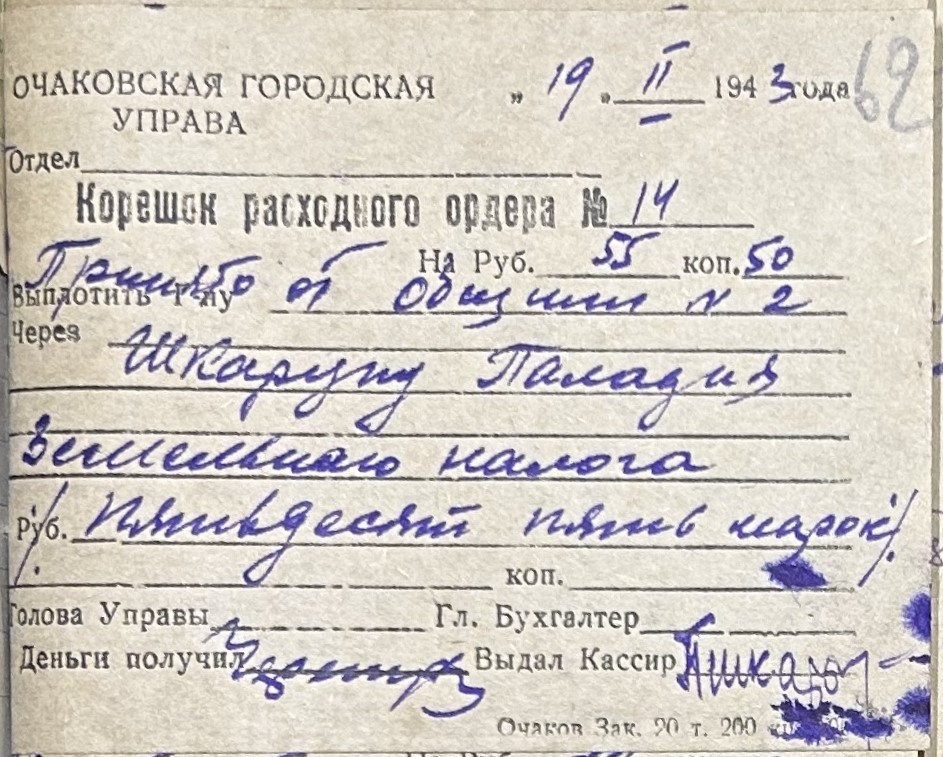 ОЧАКОВСКАЯ ГОРОДСКАЯ „ 19 „ II 1943 года 62
УПРАВА
Отдел
Корешок расходного ордера № 14
На Руб. 55 коп. 50
Принято от Общины N 2
Выплотить Гну
Через
Шкарупу Паладия
Земельного налога
Руб. /Пятьдесят пять марок/.
коп.
Голова Управы Гл. Бухгалтер
Деньги получил Выдал Кассир
Очаков Зак. 20 т. 200